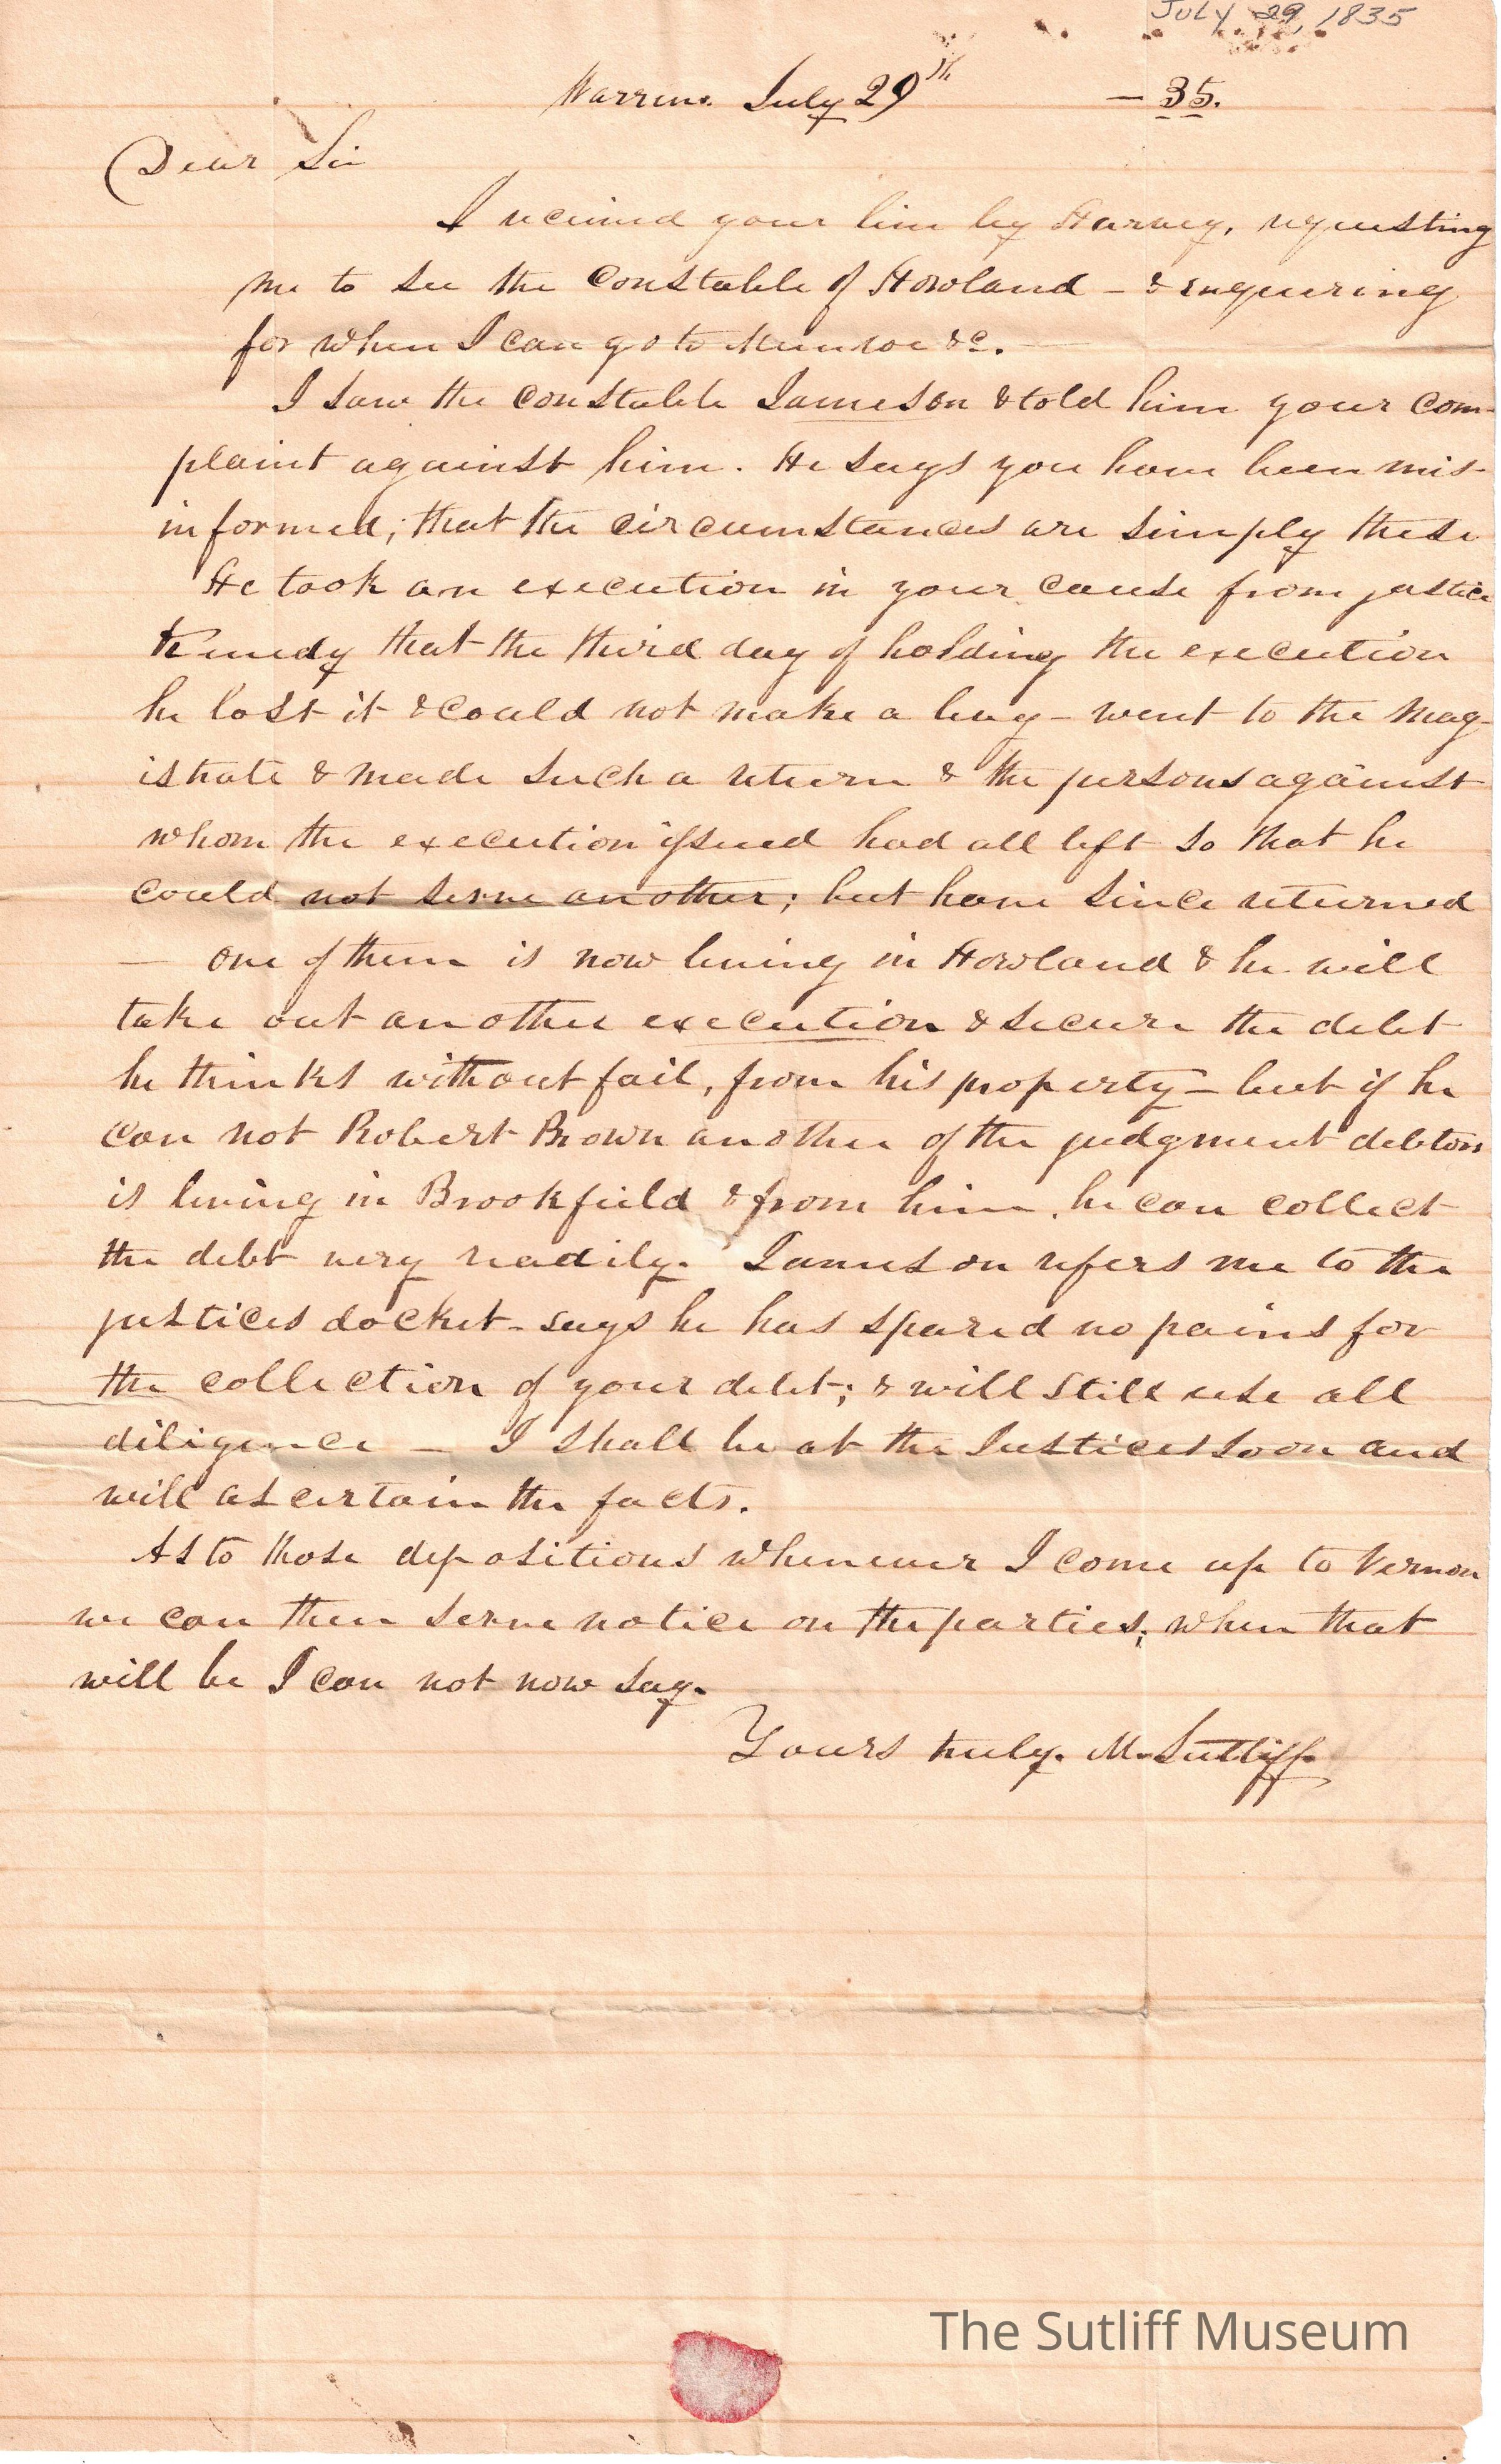 JULY 29, 1835
Warren. July 29th — 35.
Dear Sir
I received your line by Harvey, requesting
me to see the Constable of Howland – & enquiring
for when I can go to Munroe &c.
I saw the constable Jameson & told him your com-
plaint against him. He says you have been mis-
informed; that the circumstances are simply these
He took an execution in your cause from justice
Kennedy that the third day of holding the execution
he lost it & could not make a levy – went to the Mag-
istrate & made such a return & the persons against
whom the execution issued had all left so that he
could not serve another; but have since returned
— one of them is now living in Howland & he will
take out another execution & secure the debt
he thinks without fail, from his property – but if he
can not Robert Brown another of the judgment debtors
is living in Brookfield & from him he can collect
the debt very readily. Jameson refers me to the
justices docket – says he has spared no pains for
the collection of your debt; & will still use all
diligence — I shall be at the Justices soon and
will ascertain the facts.
As to those depositions whenever I come up to Vernon
we can then serve notice on the parties; when that
will be I can not now say.
Yours truly. M. Sutliff.
The Sutliff Museum